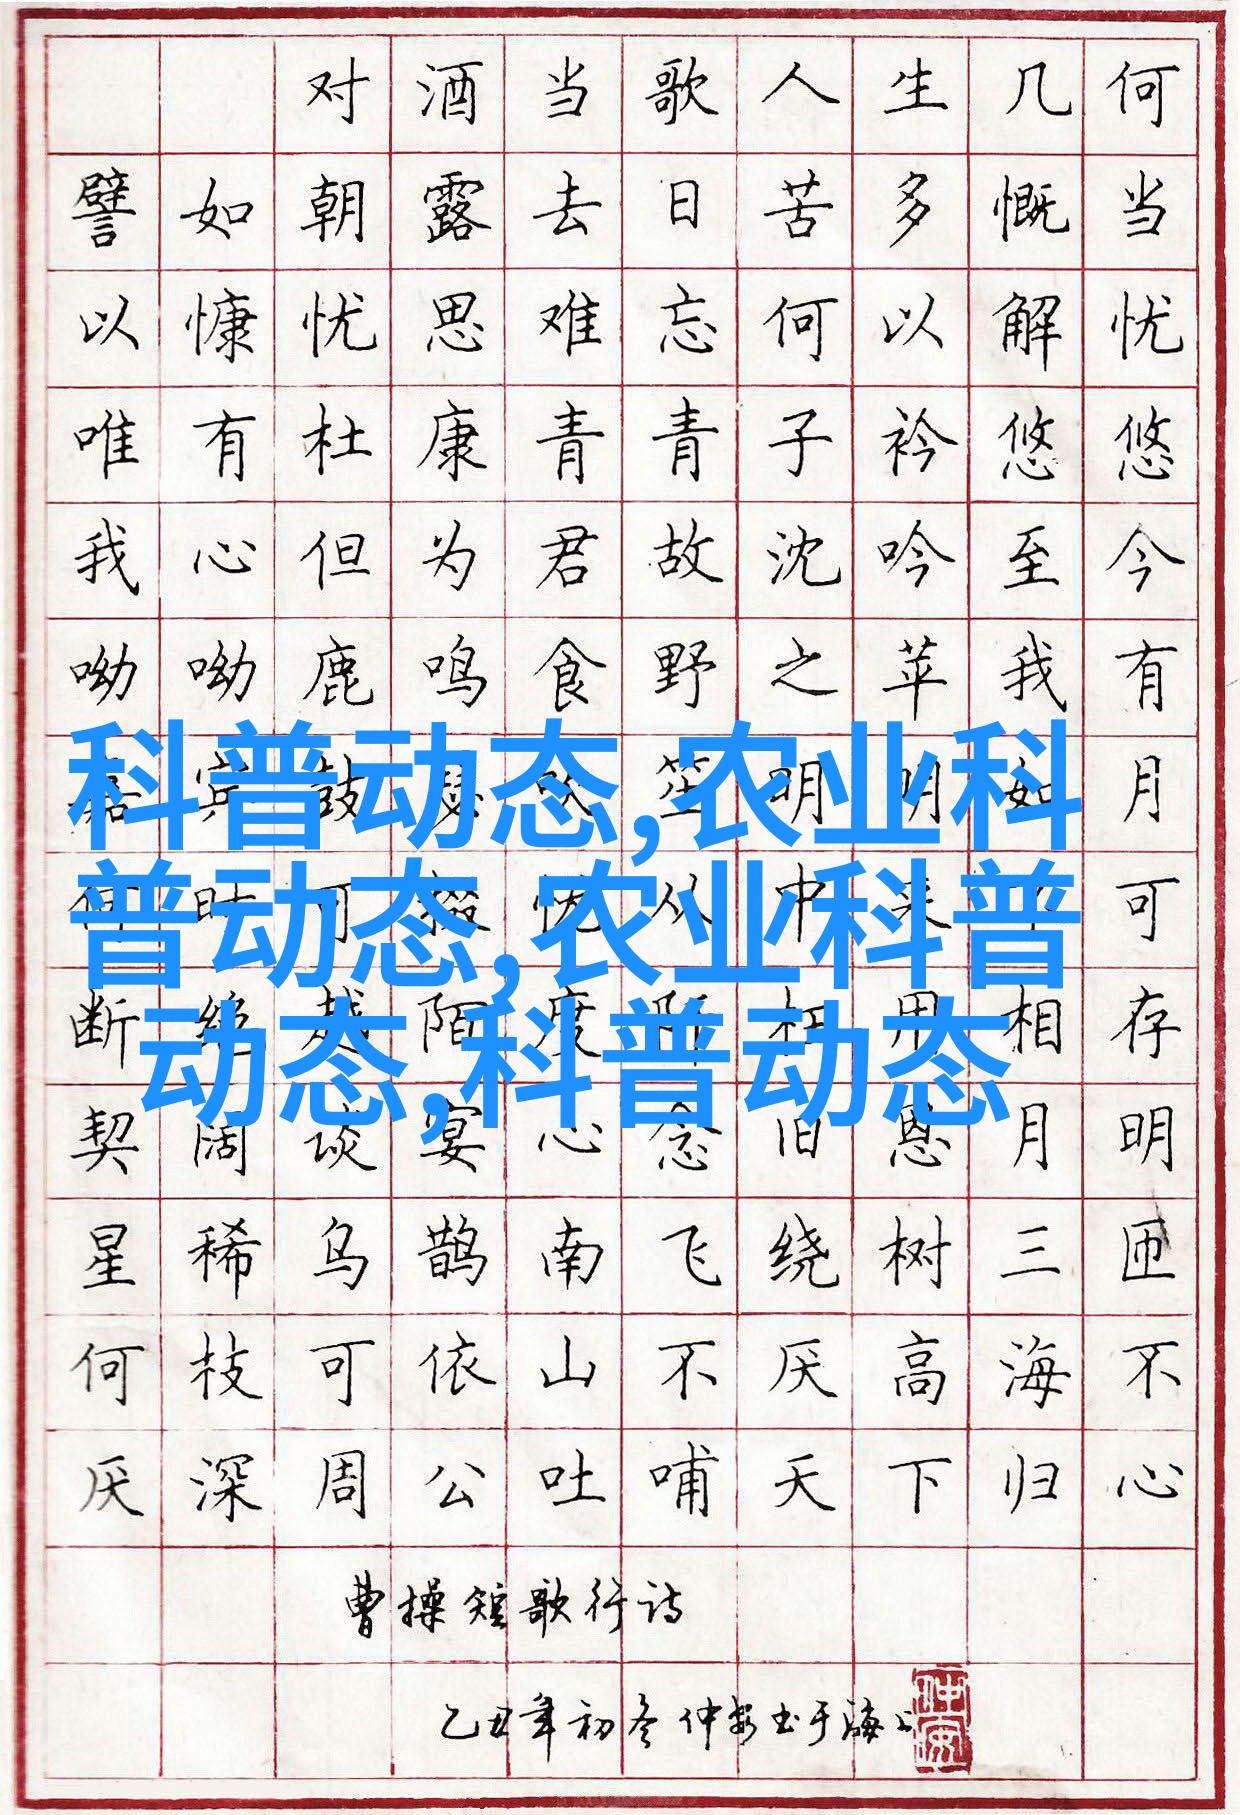 对酒当歌人生几何
譬如朝露去日苦多慨当
以慷忧思难忘何以解忧
唯有杜康青青子衿悠悠
我心但为君故沈吟至今
呦呦鹿鸣食野之苹我有
科普动态,农业科
月
普动态,农业科普
可
断 相存
动态,科普动态
契阔谈宴心念旧恩月明
星稀乌鹊南飞绕树三匝
何枝可依山不厌高海不
厌深周公吐哺天下归心
曹操短歌行诗
乙丑年初冬仲安书于海上
仲安